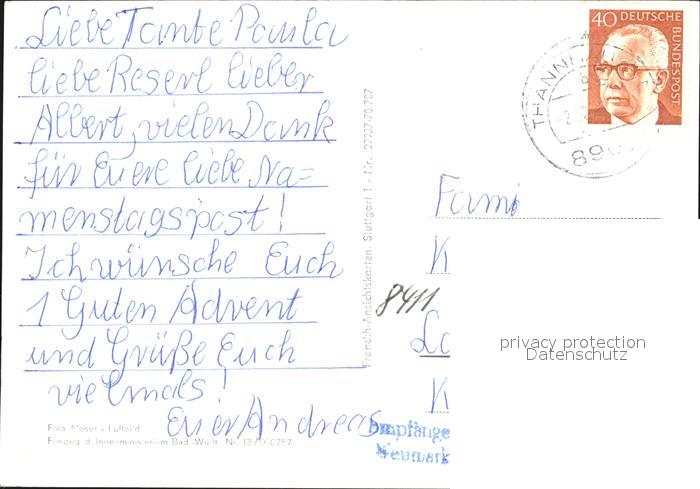 Liebe Tante Paula
liebe Reserl lieber
Albert, vielen Dank
für Euere liebe Na=
menstagspost!
Ich wünsche Euch
1 Guten Advent
und Grüße Euch
vielmals!
Euer Andreas
Foto Moser - Luftbild
Freigeg. d. Innenministerium Bad.-Württ. Nr.
Franckh-Ansichtskarten, Stuttgart 1 - Nr. 27737-70/707
40 DEUTSCHE
BUNDESPOST
THANN
Fami
K
8411
K
Empfänge
Neumark
privacy protection
Datenschutz